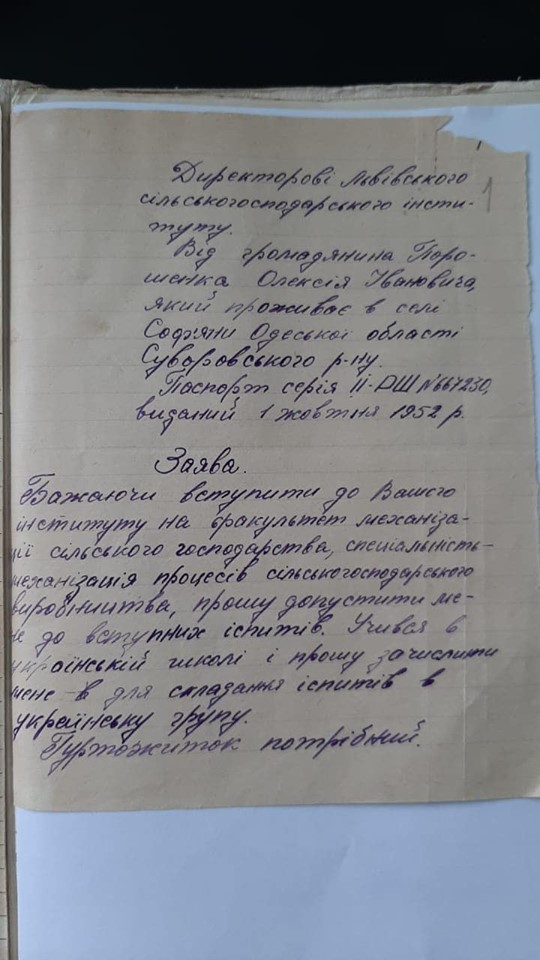 1
Директорові Львівського
сільськогосподарського інсти-
туту.
Від громадянина Поро-
шенка Олексія Івановича,
який проживає в селі
Софяни Одеської області
Суворовського р-ну.
Паспорт серія II-РШ №667230,
виданий 1 жовтня 1952 р.
Заява.
Бажаючи вступити до Вашого
інституту на факультет механіза-
ції сільського господарства, спеціальність-
механізація процесів сільськогосподарського
виробництва, прошу допустити ме-
не до вступних іспитів. Учився в
українській школі і прошу зачислити
мене в для складання іспитів в
українську групу.
Гуртожиток потрібний.